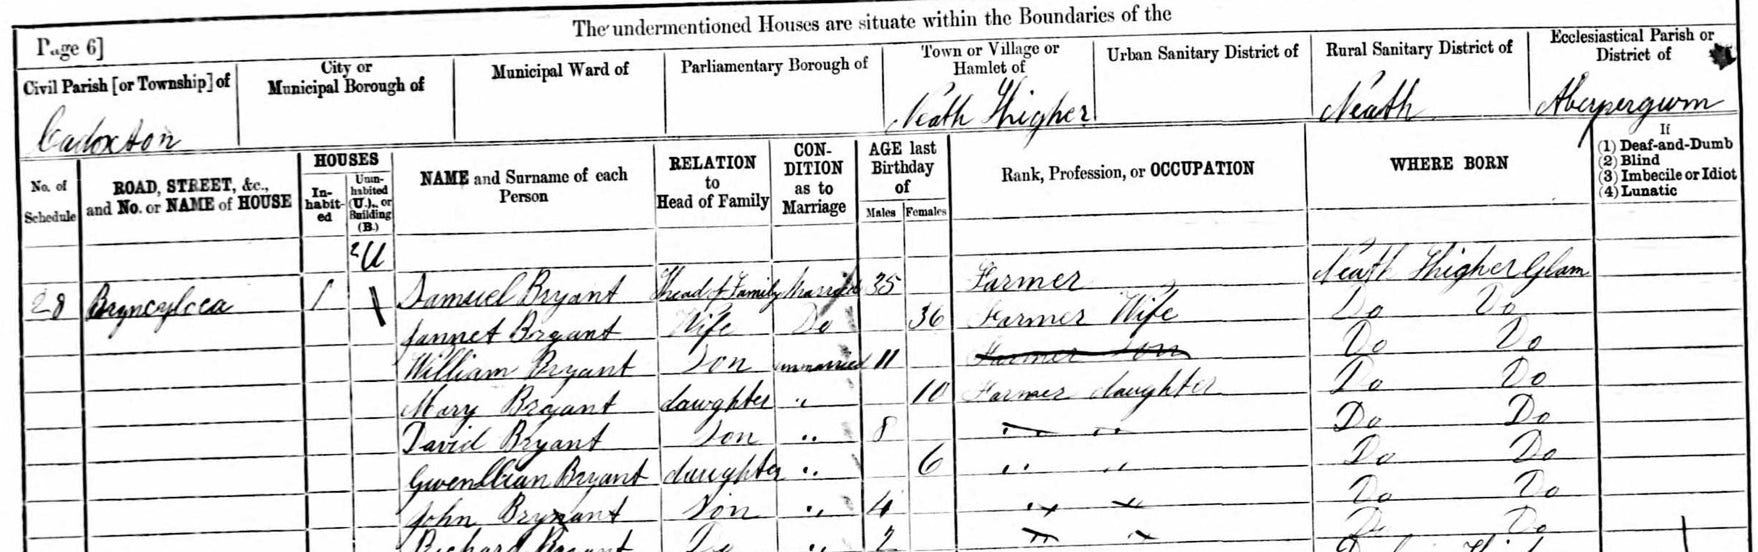 The undermentioned Houses are situate within the Boundaries of the
Page 6]
Civil Parish [or Township] of
City or Municipal Borough of
Municipal Ward of
Parliamentary Borough of
Town or Village or Hamlet of
Urban Sanitary District of
Rural Sanitary District of
Ecclesiastical Parish or District of
Cadoxton
Neath Higher
Neath
Aberpergwm
No. of Schedule
ROAD, STREET, &c., and No. or NAME of HOUSE
HOUSES
In-habit-ed
Unin-habited (U.), or Building (B.)
NAME and Surname of each Person
RELATION to Head of Family
CON-DITION as to Marriage
AGE last Birthday of
Males
Females
Rank, Profession, or OCCUPATION
WHERE BORN
If
(1) Deaf-and-Dumb
(2) Blind
(3) Imbecile or Idiot
(4) Lunatic
2 U
28 1 Samuel Bryant Head of Family Married 35 Farmer Neath Higher Glam
Jannet Bryant Wife Do 36 Farmer Wife Do Do
William Bryant Son unmarried 11 Farmer Son Do Do
Mary Bryant daughter " 10 Farmer daughter Do Do
David Bryant Son " 8 " " Do Do
Gwenllian Bryant daughter " 6 " " Do Do
John Brynant Son " 4 " " Do Do
Richard Bryant Do " 2 " " Do Do